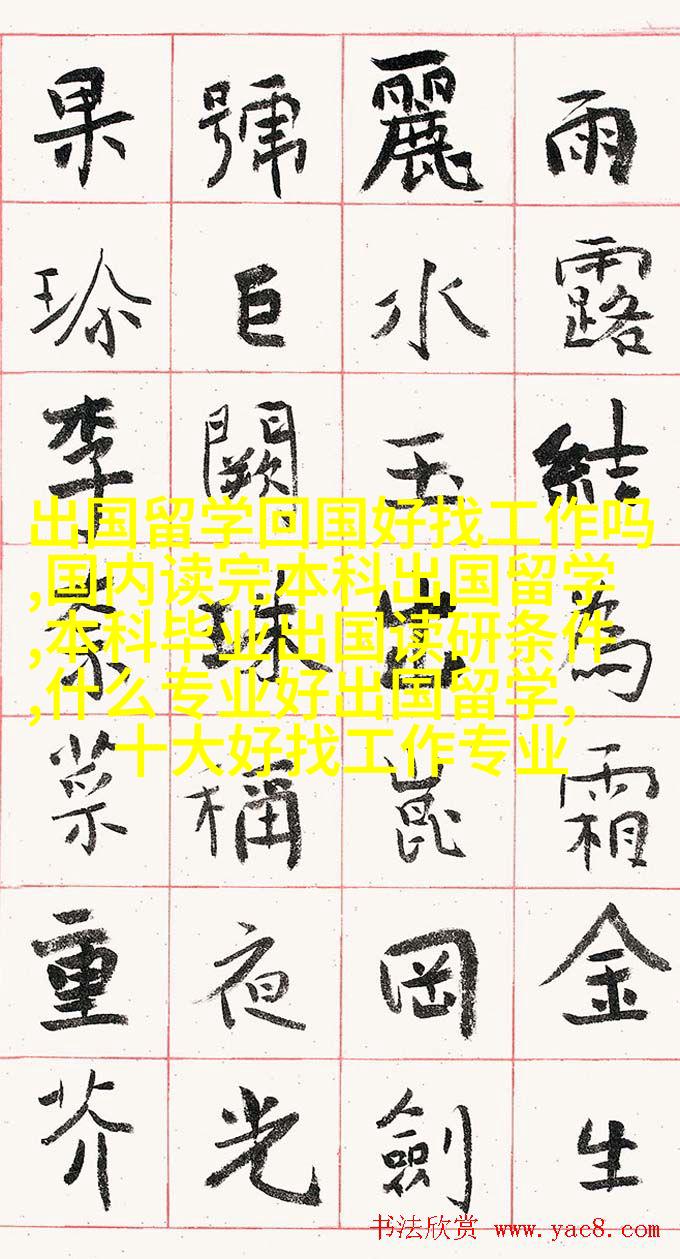 雨露結為霜金生
麗水玉出崑岡劍
號巨闕珠稱夜光
果珎李柰菜重芥
出国留学回国好找工作吗
,国内读完本科出国留学
,本科毕业出国读研条件
,什么专业好出国留学,
十大好找工作专业
书法欣赏 www.yac8.com